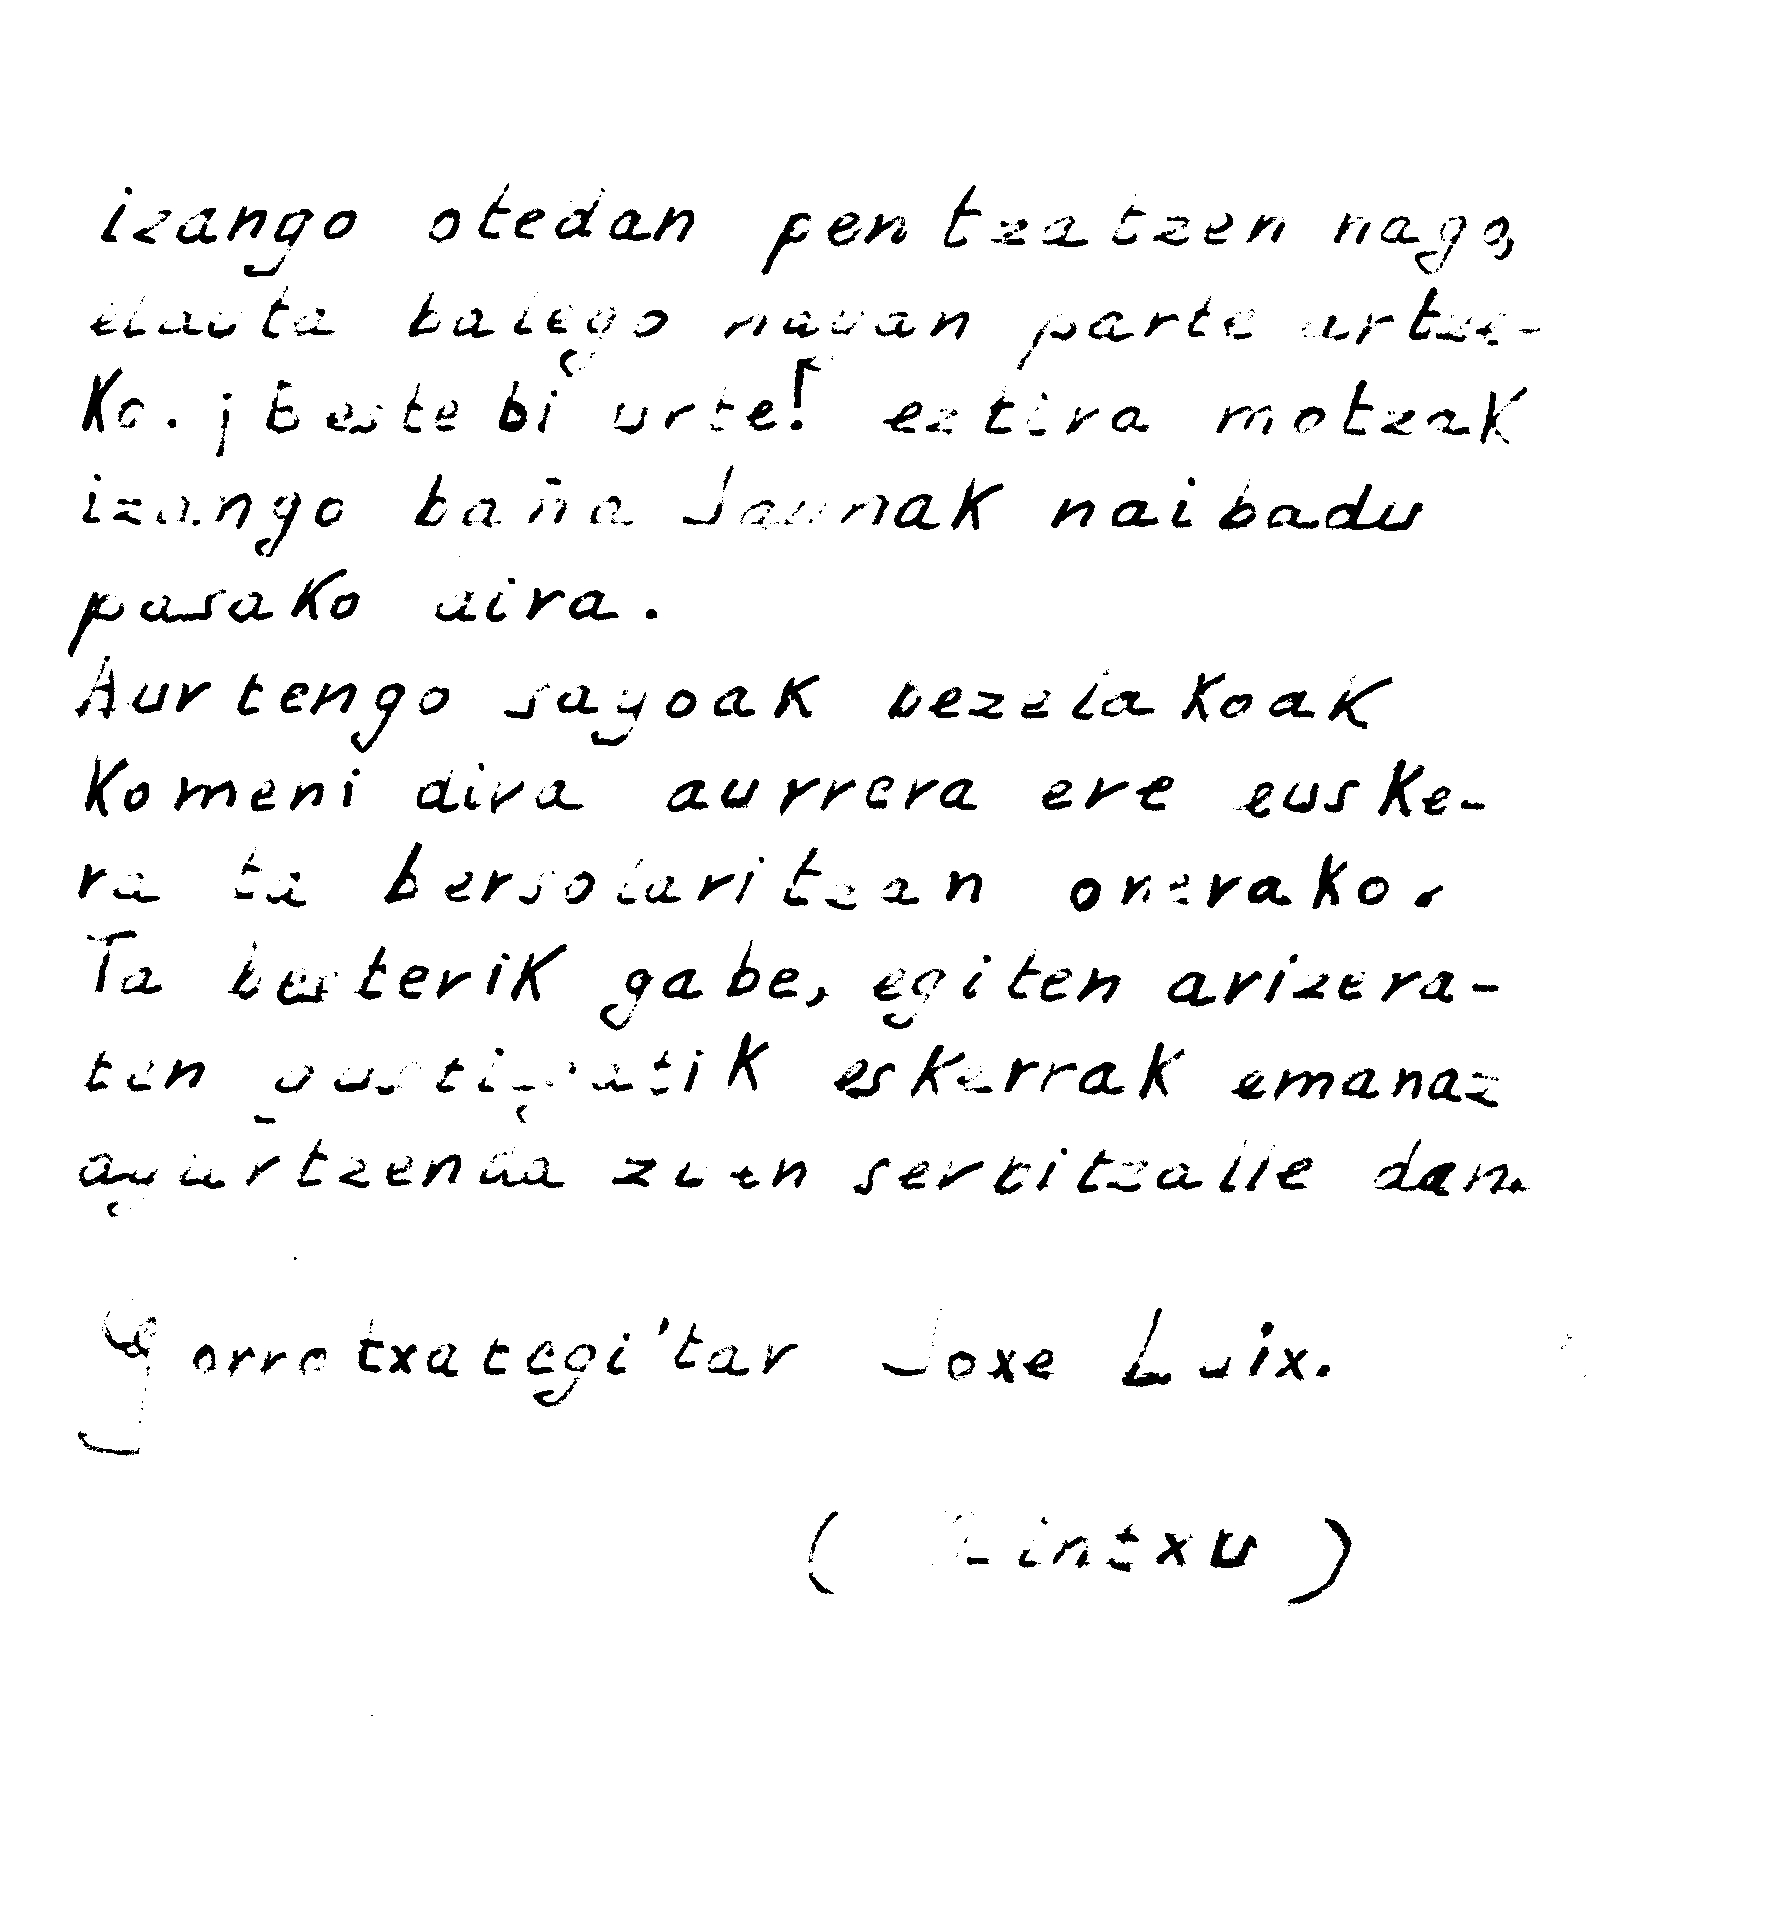 izango otedan pentzatzen nago,
elauta balego nayan parte artze-
ko. ¡beste bi urte! eztira motzak
izango baña Jaunak naibadu
pasako dira.
Aurtengo sayoak bezelakoak
komeni dira aurrera ere euske-
ra ta bersolaritzan onerako.
Ta besterik gabe, egiten arizera-
ten guztigatik eskerrak emanaz
agurtzenda zuen serbitzalle dan.
Gorrotxategi'tar Joxe Luix.
( Zintxu )